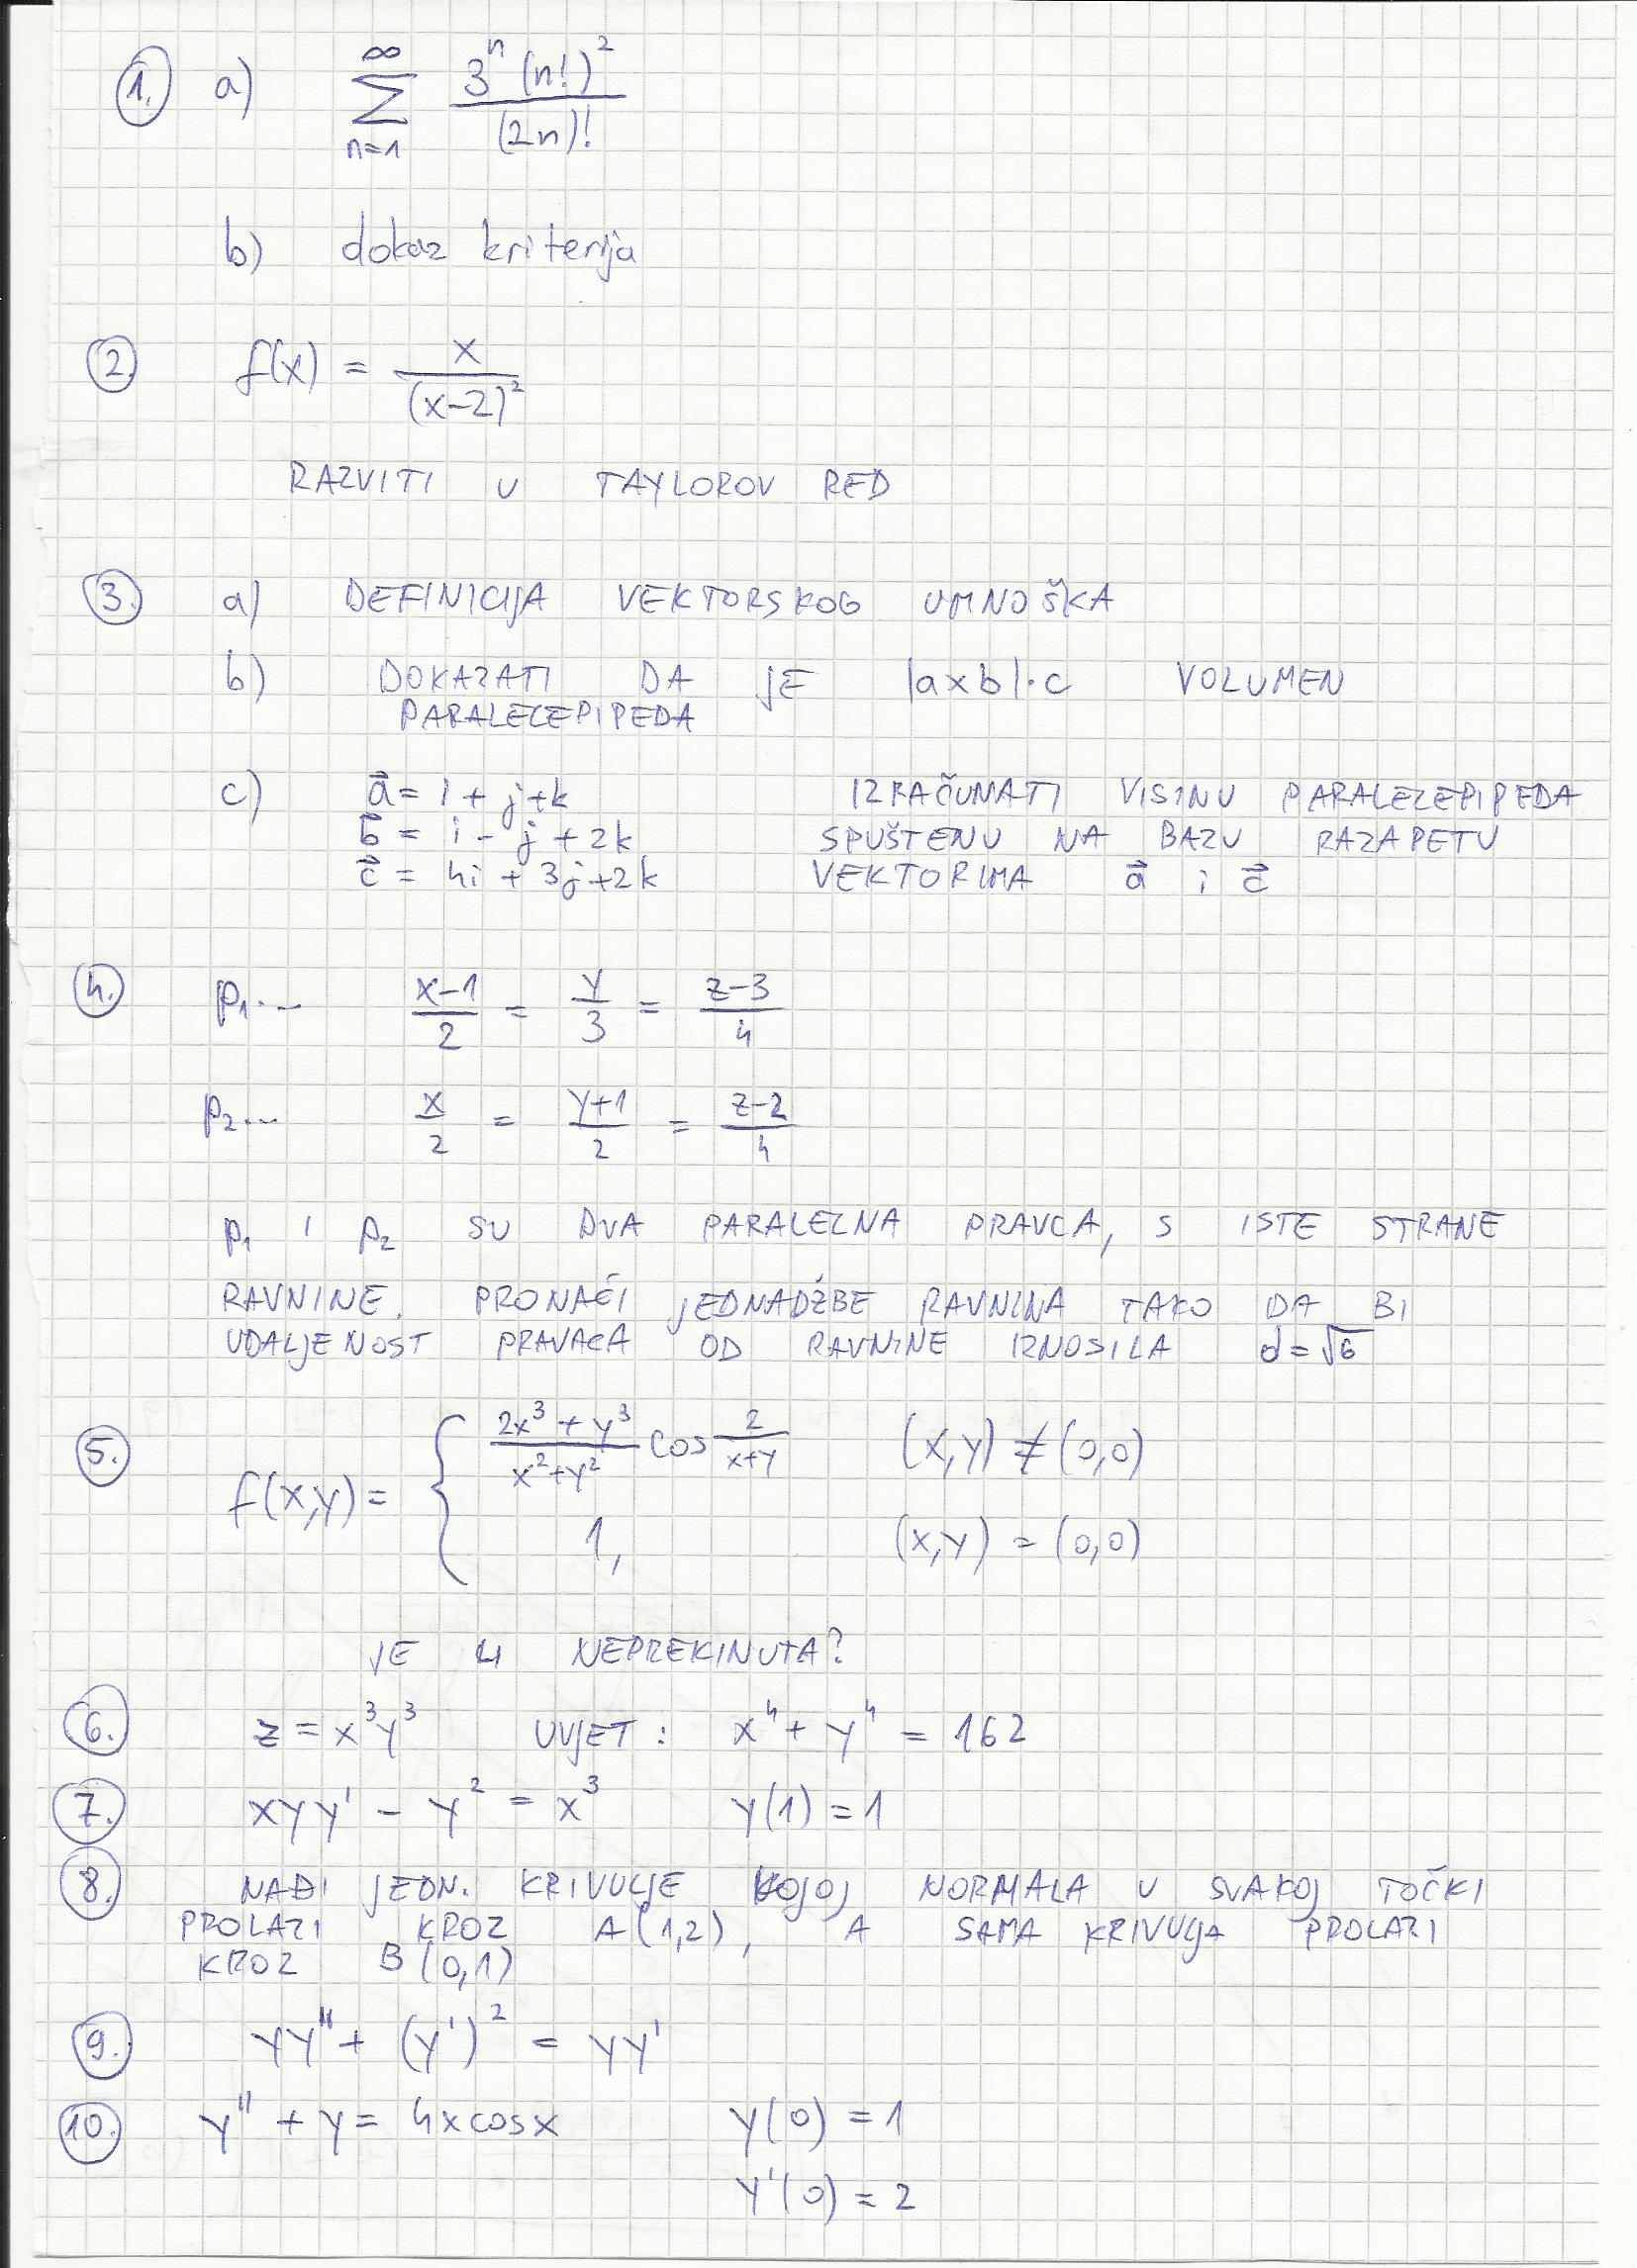 1. a) ∑_{n=1}^{∞} 3^n (n!)^2 / (2n)!
b) dokaz kriterija
2. f(x) = x / (x-2)^2
RAZVITI U TAYLOROV RED
3. a) DEFINICIJA VEKTORSKOG UMNOŠKA
b) DOKAZATI DA JE |a x b|·c VOLUMEN
PARALELEPIPEDA
c) a⃗ = i + j + k IZRAČUNATI VISINU PARALELEPIPEDA
b⃗ = i - j + 2k SPUŠTENU NA BAZU RAZAPETU
c⃗ = 4i + 3j + 2k VEKTORIMA a⃗ i c⃗
4. p₁... (x-1)/2 = y/3 = (z-3)/4
p₂... x/2 = (y+1)/2 = (z-2)/4
p₁ i p₂ SU DVA PARALELNA PRAVCA, S ISTE STRANE
RAVNINE. PRONAĆI JEDNADŽBE RAVNINA TAKO DA BI
UDALJENOST PRAVACA OD RAVNINE IZNOSILA d = √6
5. f(x,y) = { (2x^3 + y^3)/(x^2 + y^2) cos 2/(x+y) (x,y) ≠ (0,0)
1, (x,y) = (0,0)
JE LI NEPREKINUTA?
6. z = x^3 y^3 UVJET: x^4 + y^4 = 162
7. xyy' - y^2 = x^3 y(1) = 1
8. NAĐI JEDN. KRIVULJE KOJOJ NORMALA U SVAKOJ TOČKI
PROLAZI KROZ A(1,2), A SAMA KRIVULJA PROLAZI
KROZ B(0,1)
9. yy'' + (y')^2 = yy'
10. y'' + y = 4x cosx y(0) = 1
y'(0) = 2